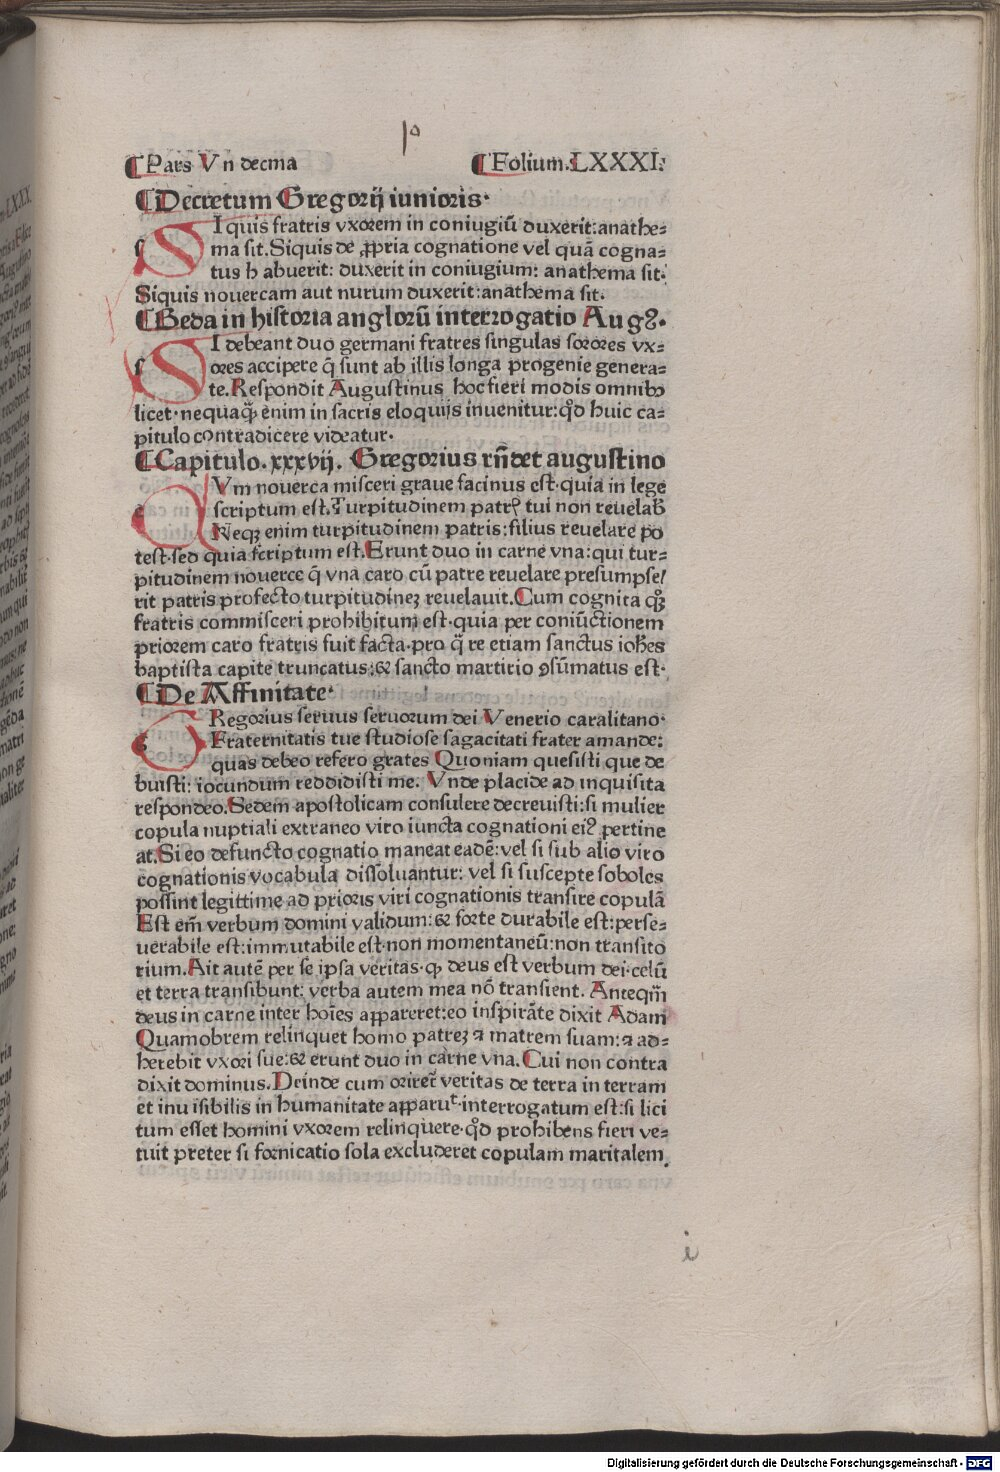 ¶Pars Vn decma ¶Folium.LXXXI:
¶Decretum Gregorij iunioris·
SI quis fratris vxorem in coniugiū duxerit:anathe⸗
ma sit.Siquis de ꝓpria cognatione vel quā cogna⸗
tus h abuerit: duxerit in coniugium: anathema sit:
Siquis nouercam aut nurum duxerit:anathema sit.
¶Beda in historia anglorū interrogatio Augꝰ.
SI debeant duo germani fratres singulas sorores vx⸗
ores accipere q̄ sunt ab illis longa progenie genera⸗
te.Respondit Augustinus hoc fieri modis omnibꝫ
licet·nequaꝙ̄ enim in sacris eloquijs inuenitur:qd̄ huic ca⸗
pitulo contradicere videatur·
¶Capitulo.xxxvij. Gregorius rn̄det augustino
CVm nouerca misceri graue facinus est·quia in lege
scriptum est.Turpitudinem patrꝭ tui non reuelab̄
Neqꝫ enim turpitudinem patris:filius reuelare po
test·sed quia scriptum est.Erunt duo in carne vna:qui tur⸗
pitudinem nouerce q̄ vna caro cū patre reuelare presumpse/
rit patris profecto turpitudineꝫ reuelauit.Cum cognita qꝫ
fratris commisceri prohibitum est·quia per coniūctionem
priorem caro fratris fuit facta·pro q̄ re etiam sanctus ioh̄es
baptista capite truncatus:⁊ sancto martirio ꝯsūmatus est·
¶De Affinitate·
GRegorius seruus seruorum dei Venerio caralitano·
Fraternitatis tue studiose sagacitati frater amande:
quas debeo refero grates Quoniam quesisti que de
buisti: iocundum reddidisti me. Vnde placide ad inquisita
respondeo.Sedem apostolicam consulere decreuisti:si mulier
copula nuptiali extraneo viro iuncta cognationi eiꝰ pertine
at.Si eo defuncto cognatio maneat eadē:vel si sub alio viro
cognationis vocabula dissoluantur: vel si suscepte soboles
possint legittime ad prioris viri cognationis transire copulā
Est em̄ verbum domini validum:⁊ forte durabile est:perse⸗
uerabile est:immutabile est·non momentaneū:non transito
rium.Ait autē per se ipsa veritas·ꝙ deus est verbum dei·celū
et terra transibunt: verba autem mea nō transient. Anteqm̄
deus in carne inter hoīes appareret:eo inspirāte dixit Adam
Quamobrem relinquet homo patreꝫ ⁊ matrem suam:⁊ ad⸗
herebit vxori sue:⁊ erunt duo in carne vna.Cui non contra
dixit dominus.Deinde cum oriret̄ veritas de terra in terram
et inu isibilis in humanitate apparuᵗ·interrogatum est:si lici
tum esset homini vxorem relinquere·qd̄ prohibens fieri ve⸗
tuit preter si fornicatio sola excluderet copulam maritalem.
i
Digitalisierung gefördert durch die Deutsche Forschungsgemeinschaft - DFG